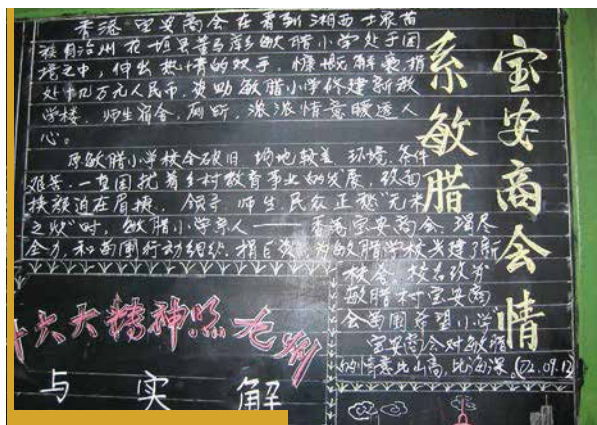 宝安商会情
系敏腊
香港宝安商会在看到湘西土家苗
族自治州花垣县 敏腊小学处于困
境之中，伸出热情的双手，慷慨解囊，捐
人民币，资助敏腊小学修建新教
学楼，师生宿舍，厕所，浓浓情意暖透人
心。
原敏腊小学校舍破旧，场地较差，环境、条件
艰苦，一直困扰着乡村教育事业的发展，改面
换颜迫在眉捷，领导、师生、民众正愁“无米
之炊”时，敏腊小学亲人——香港宝安商会，竭尽
全力，和 行动组织，捐巨资为敏腊学校兴建了新
校舍，校名改为
敏腊村宝安商
会 希望小学
宝安商会对敏腊
的情意比山高，比海深。(02.09.12)
十六大精神
与 实 解